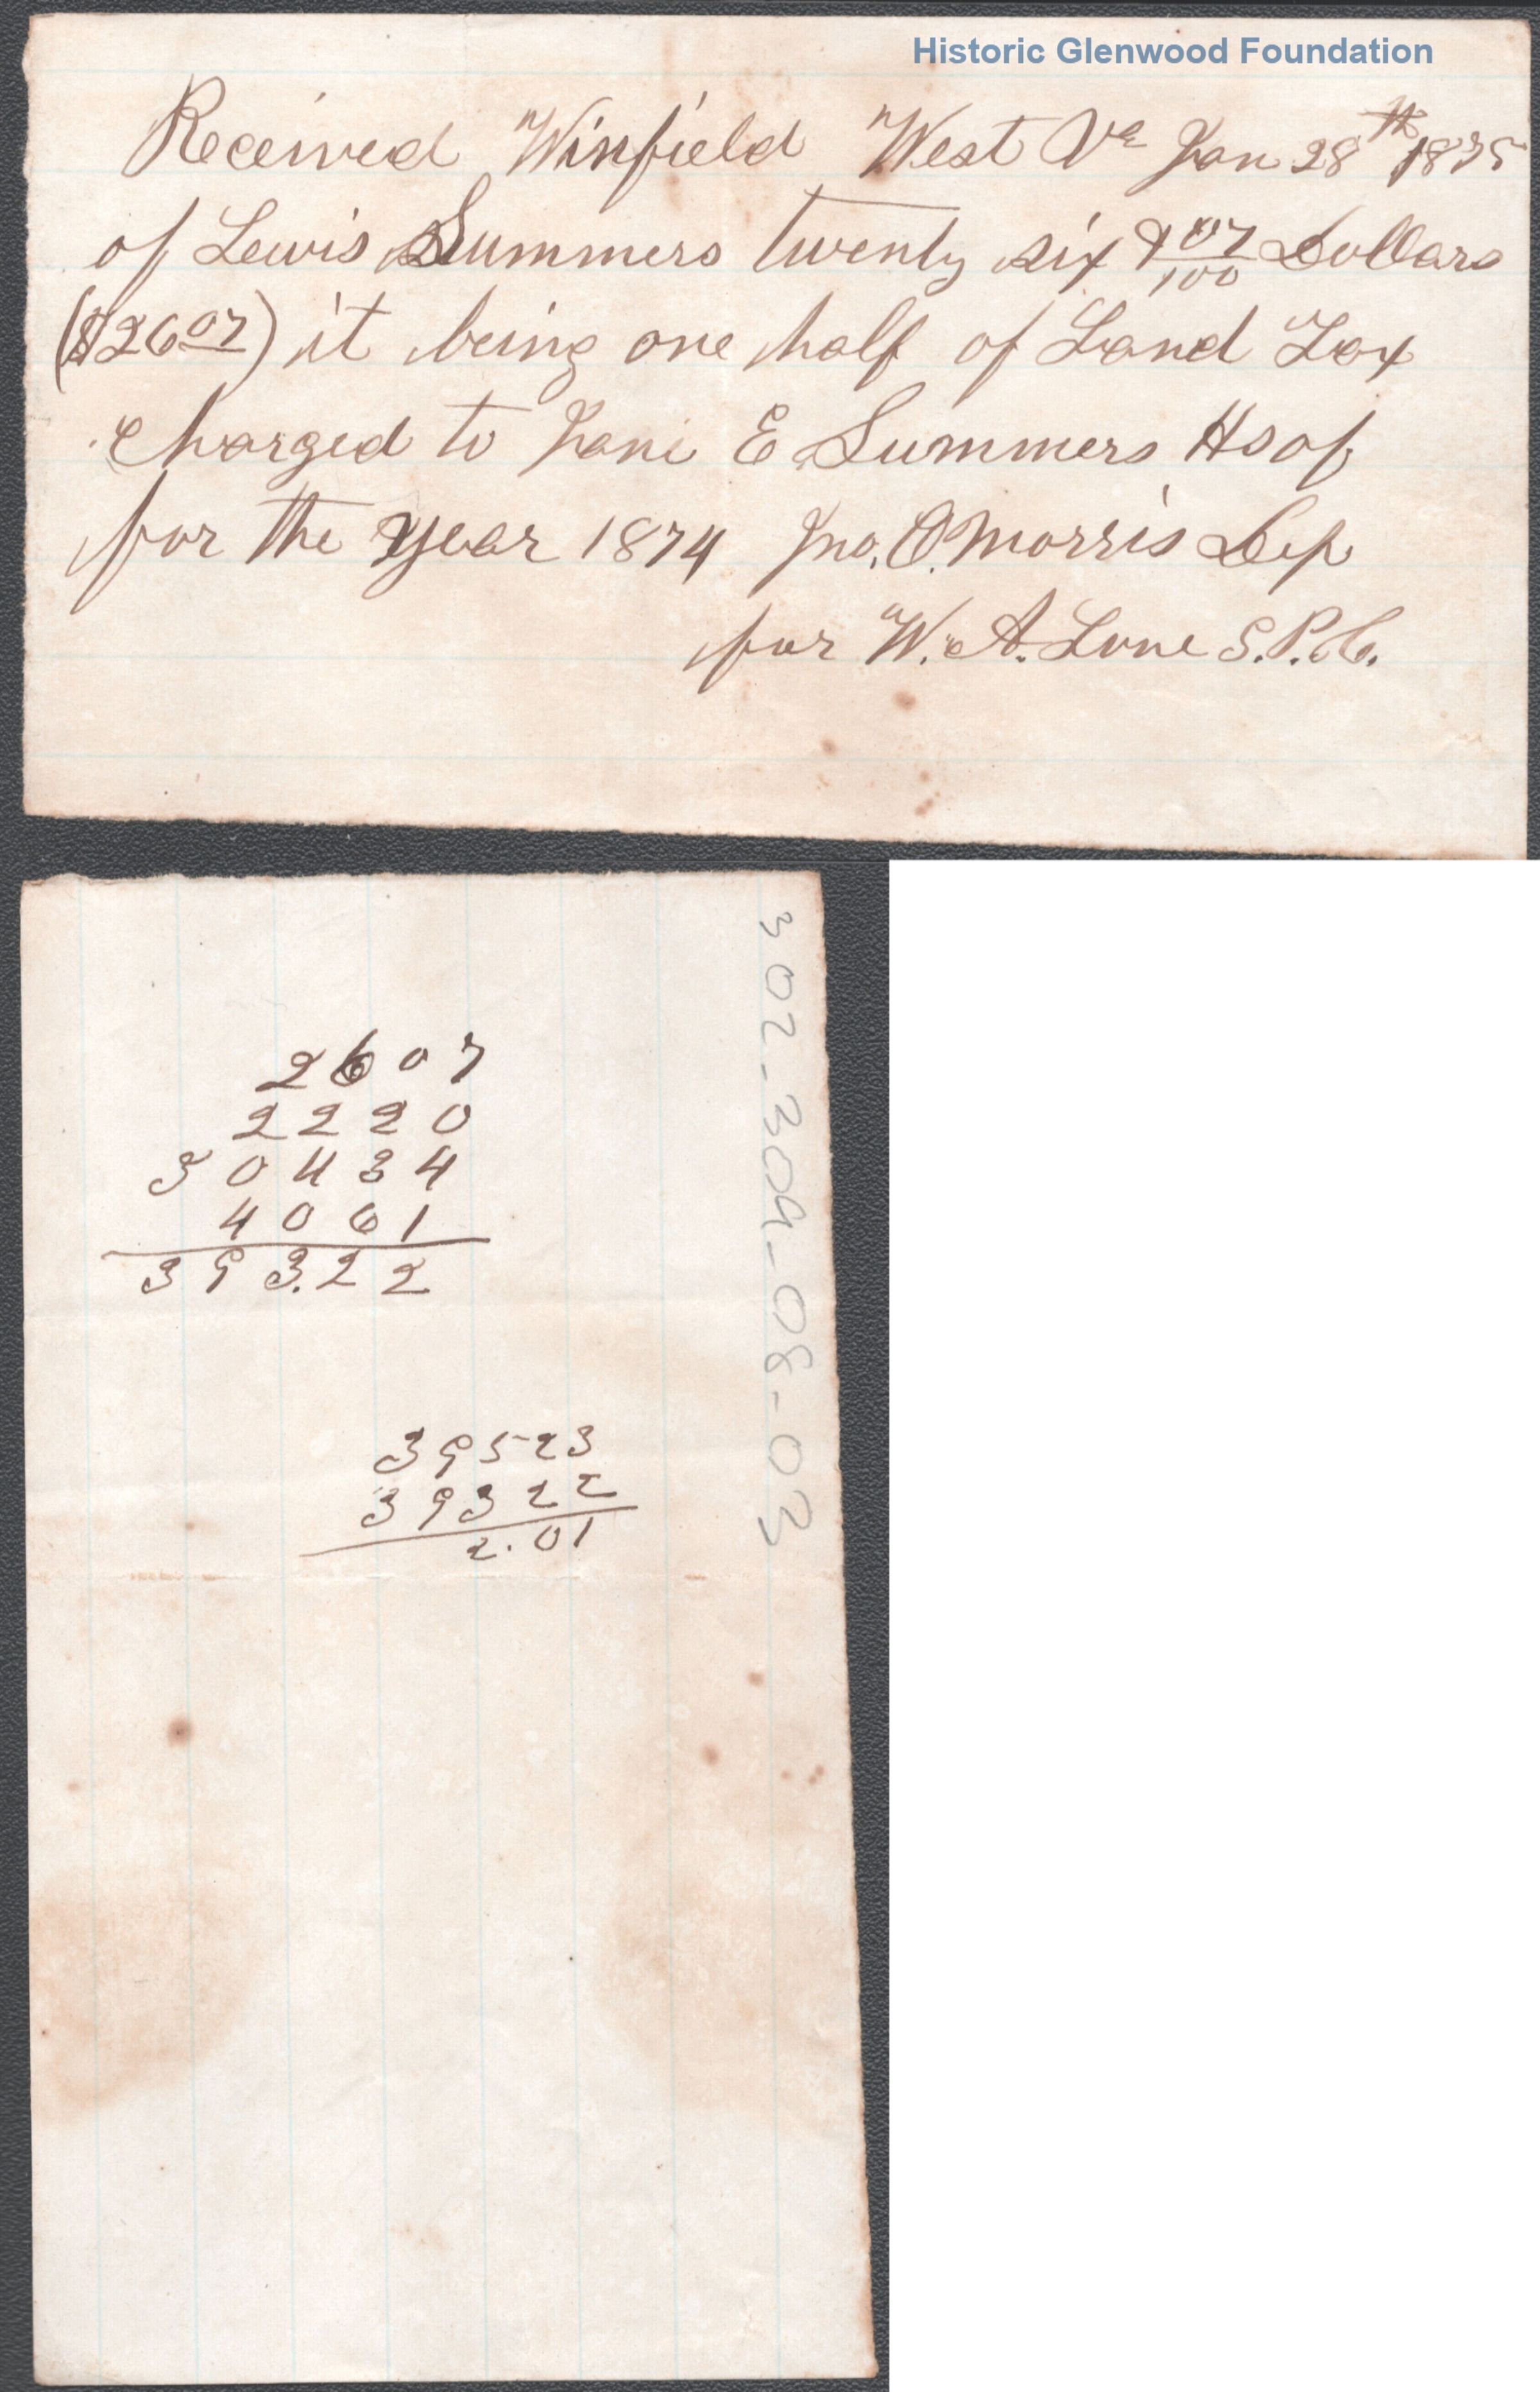 Historic Glenwood Foundation
Received Winfield West Va Jan 28th 1875
of Lewis Summers twenty six & 07/100 Dollars
($26 07) it being one half of Land Tax
Charged to Jane E Summers Hs of
for the year 1874 Jno. O. Morris Dep
for W. A. Lone S.P.C.
2607
2220
30434
4061
393.22
39523
39322
2.01
302-304-08-03